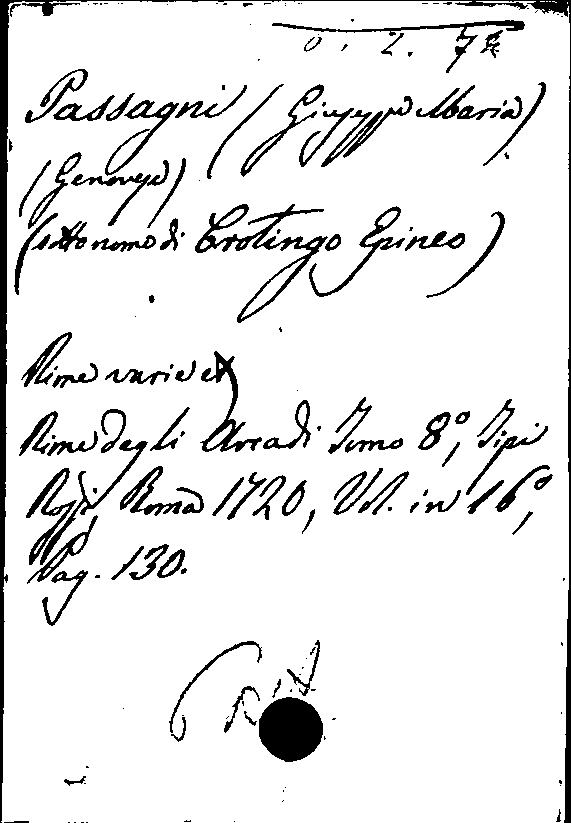 0. 2. 7
Passagni (Giuseppe Maria)
(Genovese)
(sotto nome di Crotingo Epineo)
Rime varie
Rime degli Arcadi Tomo 8°, Tipi
Rossi, Roma 1720, Vol. in 16°,
Pag. 130.